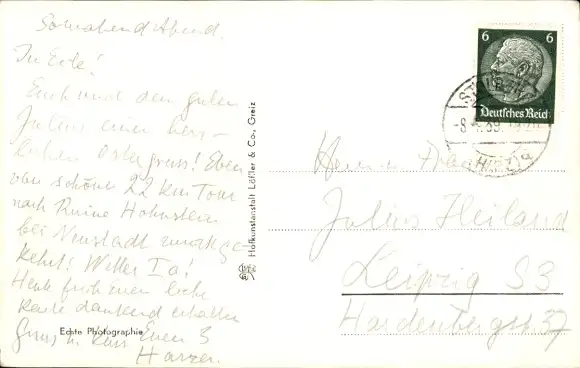 Sonnabend Abend.
In Eile!
Euch und dem guten
Julius einen herz-
lichen Ostergruss! Eben
von schöner 22 km Tour
nach Ruine Hohnstein
bei Neustadt zurückge
kehrt! Wetter Ia!
Heute früh Euren liebe
Karte dankend erhalten
Gruss u. Kuss Eure 3
Harzer.
Echte Photographie
Hofkunstanstalt Löffler & Co., Greiz
6 6
Deutsches Reich
STOLBERG
-8.4.39.
(HARZ) a
Herrn
Julius Heiland
Leipzig S3
Hardenbergstr. 37